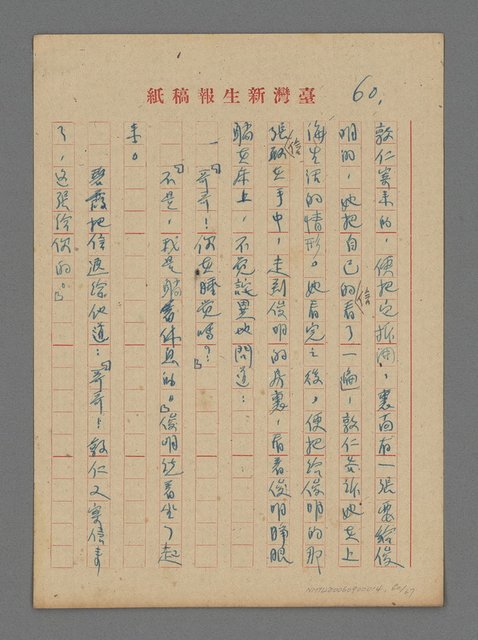 60.
臺灣新生報稿紙
敦仁寄來的，便把它拆開，裏面有一張要給俊
明的，她把自己的信看了一遍，敦仁告訴她在上
海生活的情形。她看完之後，便把給俊明的那
張信取在手中，走到俊明的房裏，看着俊明睜眼
躺在床上，不覺詫異地問道：
「哥哥！你在睡覺嗎？」
「不是，我是躺着休息的。」俊明說着坐了起
來。
碧霞把信遞給他道：「哥哥！敦仁又寄信來
了，這張給你的。」